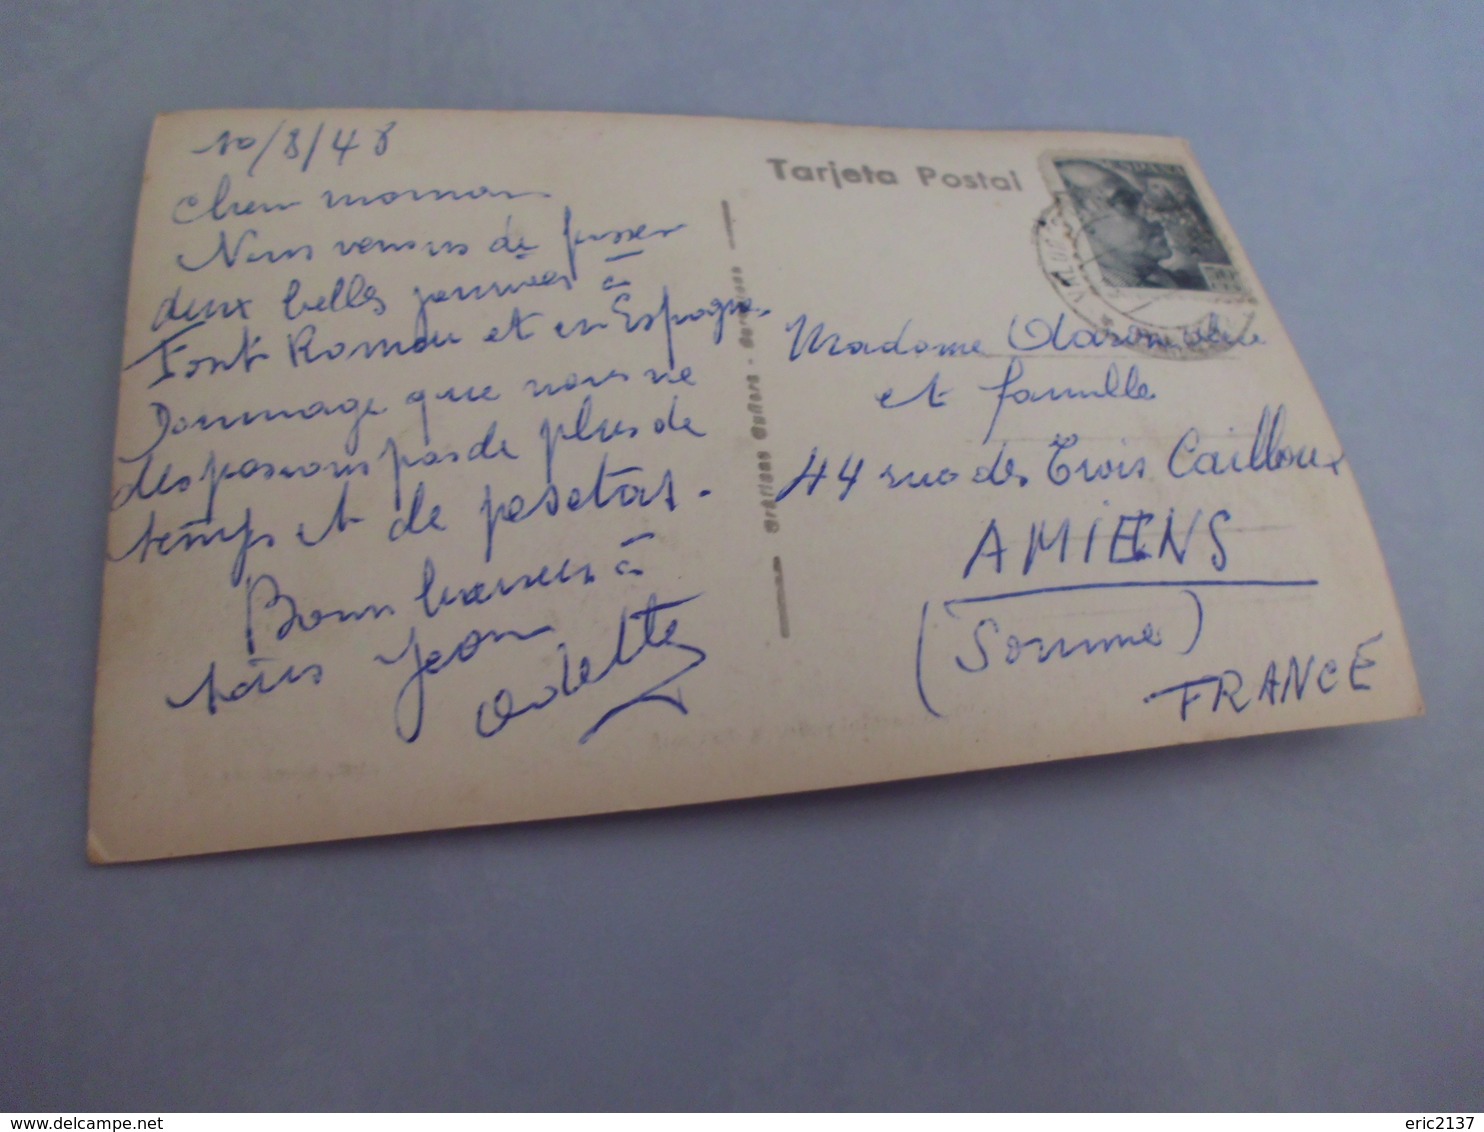 10/8/48
Chere maman
Nous venons de passer
deux belles journées à
Font Romeu et en Espagne.
Dommage que nous ne
desposions pas de plus de
temps et de pesetas.
Bons baisers à
tous Jean
Odette
Tarjeta Postal
Madame
et famille
44 rue des Trois Cailloux
AMIENS
(Somme)
FRANCE
eric2137